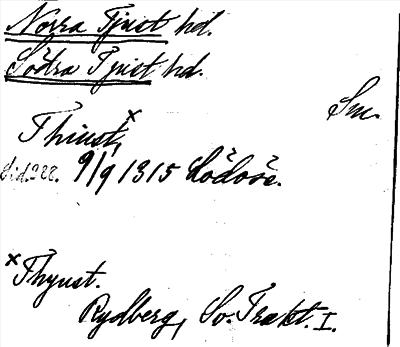 Norra Tjust hd.
Södra Tjust hd.
Sm.
Thiust,x
9/9 1315 Södose.
x Thyust.
Rydberg, Sv. Trakt. I.